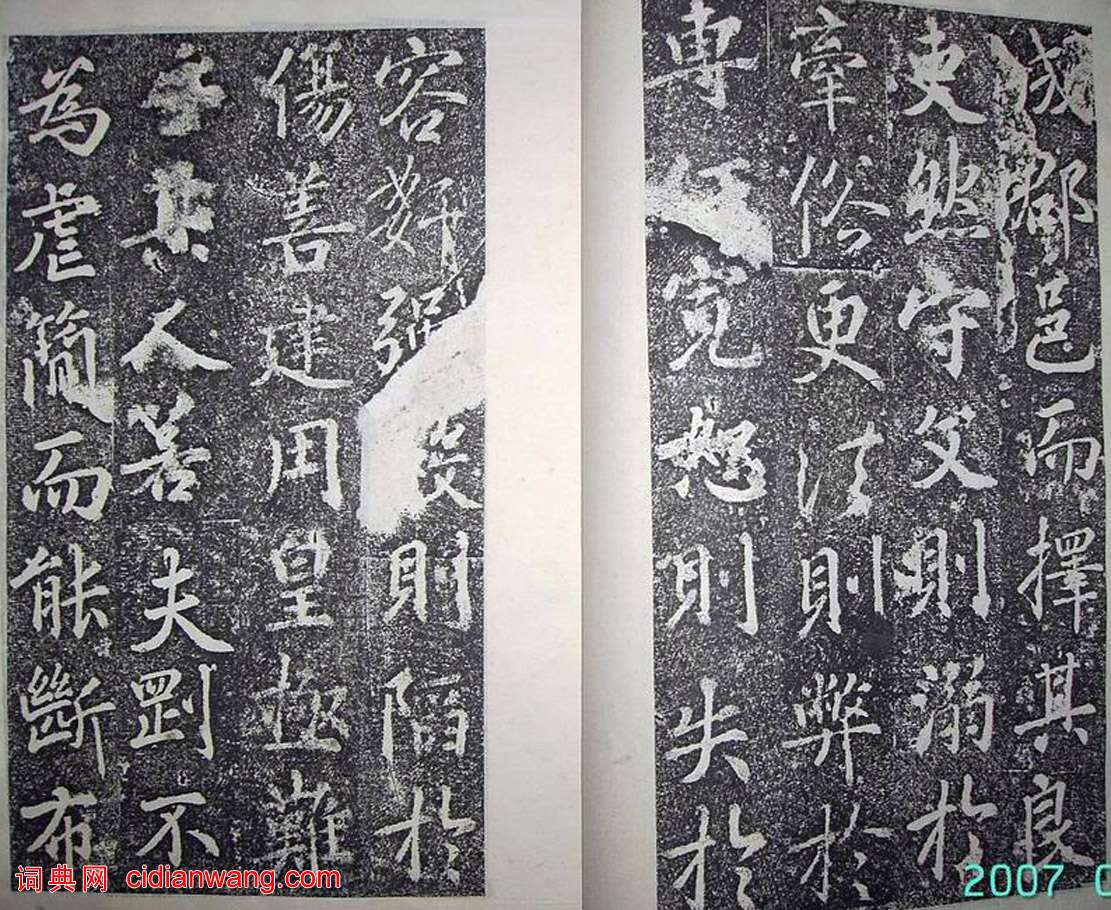 郡邑而擇其良
吏然守文則溺於
牽俗更法則弊於
專任寬恕則失於
容姧彊則陷於
傷善建用皇極難
其人善夫剛不
為虐簡而能斷布
词典网 cidianwang.com
2007 0